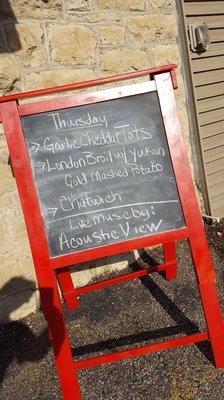 Thursday
→ Garlic Cheddar Tots
→ London Broil w/ Yukon
Gold Mashed Potato
→ Chatwich
Live music by:
Acoustic View